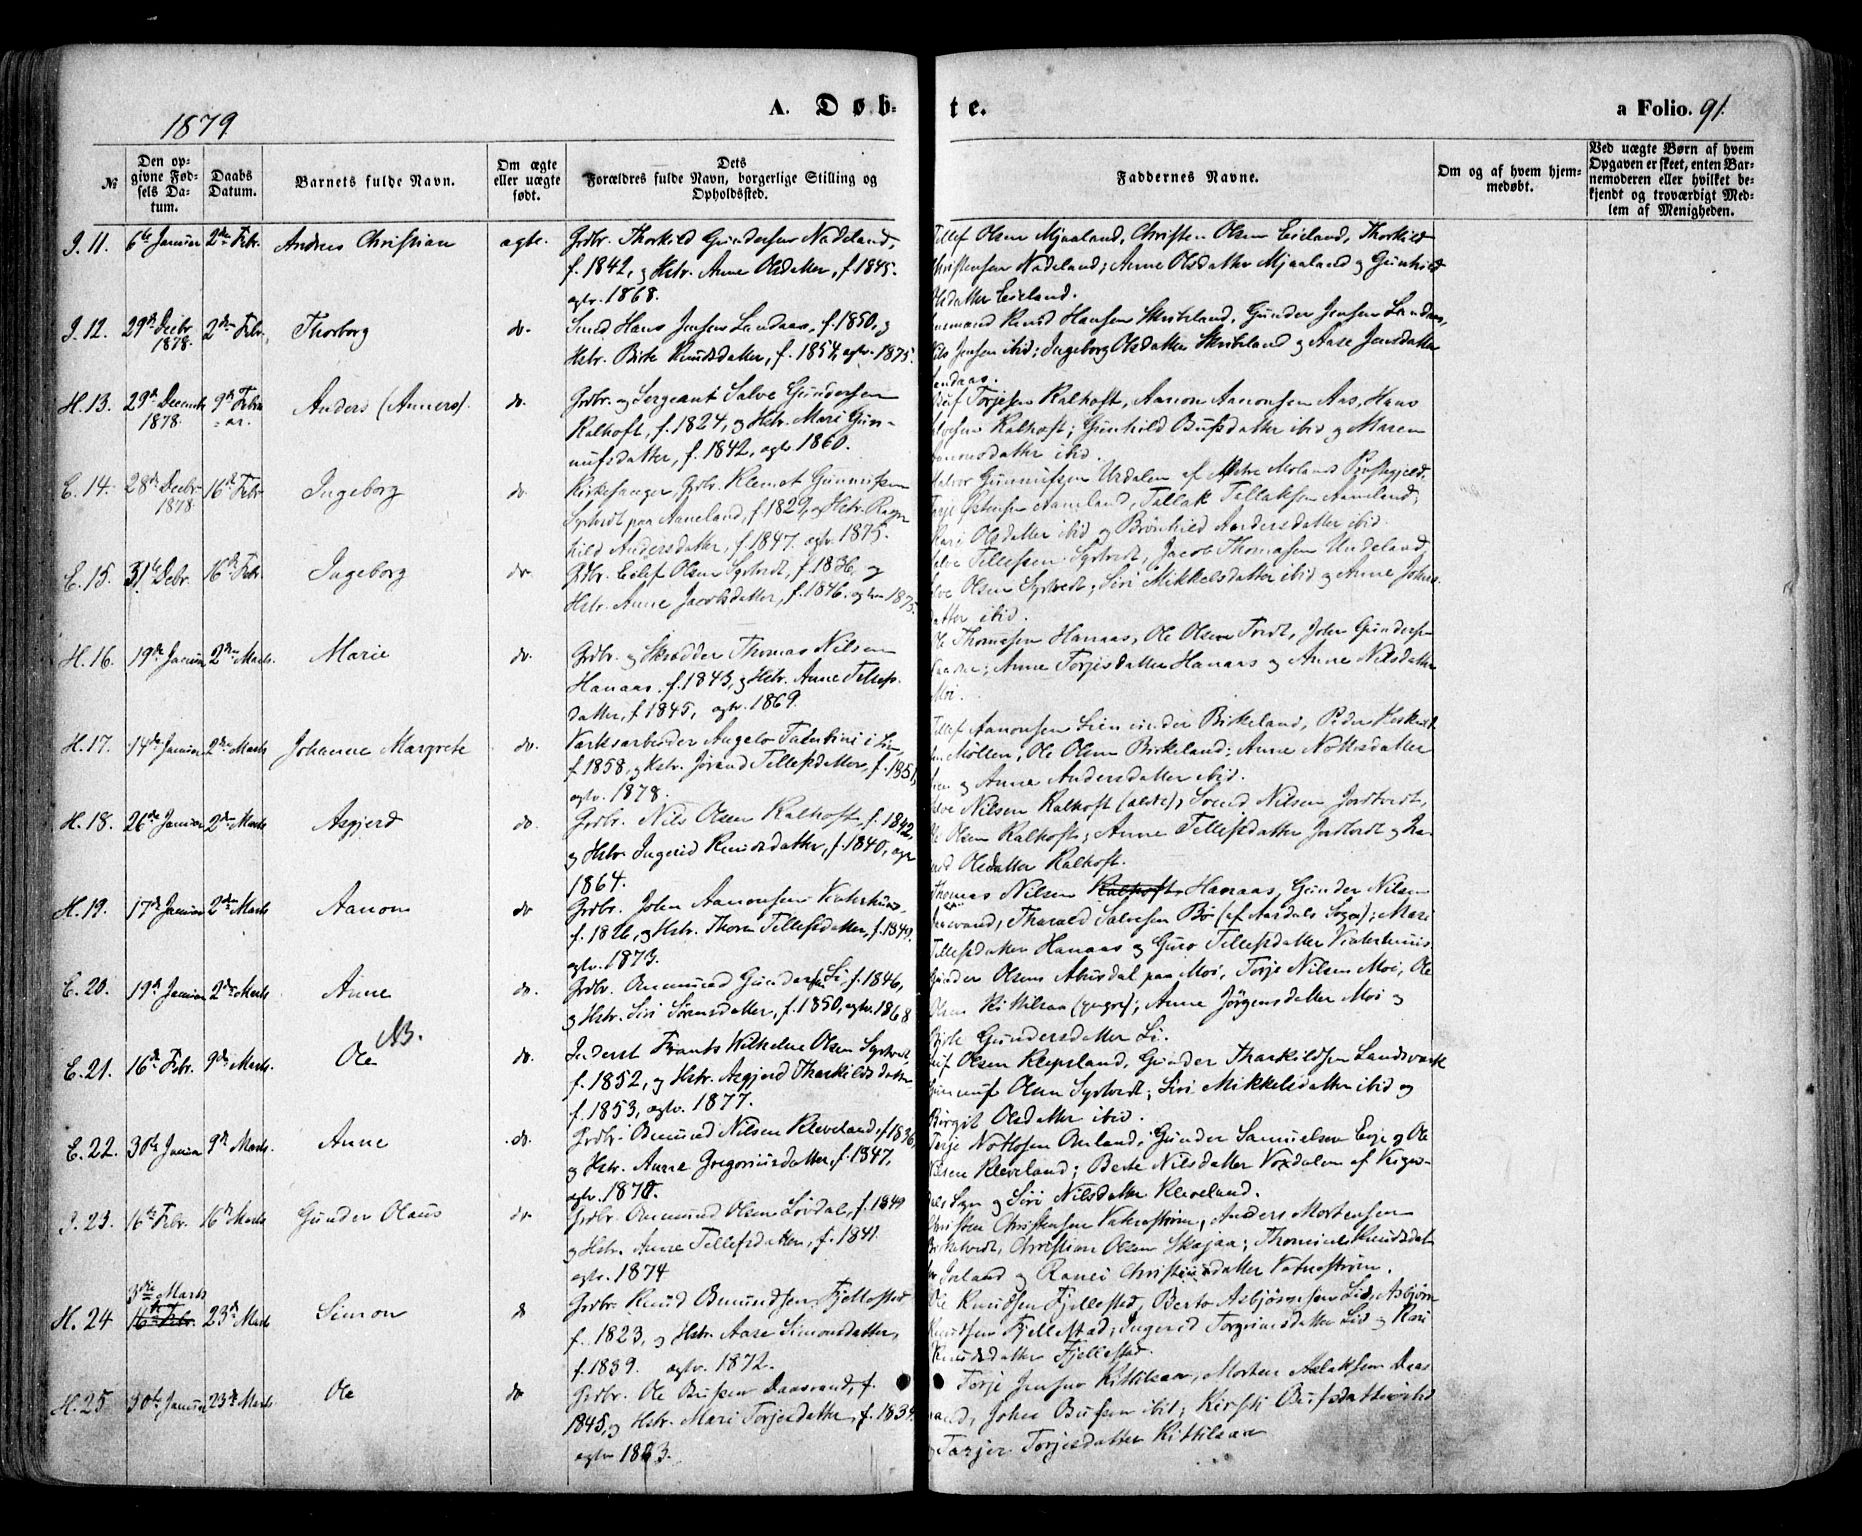 1879
A. Døb-
te.
a Folio. 91.
№
Den op-
givne Fød-
sels Da-
tum.
Daabs
Datum.
Barnets fulde Navn.
Om ægte
eller uægte
født.
Dets
Forældres fulde Navn, borgerlige Stilling og
Opholdssted.
Faddernes Navne.
Om og af hvem hjem-
medøbt.
Ved uægte Børn af hvem
Opgaven er skeet, enten Bar-
nemoderen eller hvilket be-
kjendt og troværdigt Med-
lem af Menigheden.
I. 11. 6te Januar 2den Febr. Andreas Christian ægte. Grdbr. Thorkild Gundersen Nadeland,
f. 1842, og Hstr. Anne Olsdatter, f. 1845.
agtv. 1868.
Tellef Olsen Mjaaland, Christen Olsen Eieland, Thorkild
Christensen Nadeland; Anne Olsdatter Mjaaland og Gunhild
Olsdatter Eieland.
I. 12. 29de Decbr. 1878. 2den Febr. Thorborg do. Smed Hans Jensen Landaas, f. 1850, og
Hstr. Birte Knudsdatter, f. 1854, agtv. 1875.
Knud Hansen Skribeland, Gunder Jensen Landaas,
Nils Jensen ibid; Ingeborg Olsdatter Skribeland og Aase Jensdatter
Landaas.
H. 13. 29de Decemb. 1878. 9de Februar. Anders (Anners). do. Grdbr. og Sergeant Salve Gundersen
Kalhoft, f. 1824, og Hstr. Mari Gun-
nufsdatter, f. 1842, agtv. 1860.
Torjesen Kalhoft, Aanon Aanonsen Aas, Hans
Kalhoft; Gunhild Bufsdatter ibid og Maren
ibid.
E. 14. 28de Decbr. 1878. 16de Febr. Ingeborg do. Kirkesanger, Grdbr. Klemet Gunnufsen
Syrtvedt paa Aaneland, f. 1829, og Hstr. Ragn-
hild Andersdatter, f. 1847. agtv. 1875.
Halvor Gunnufsen Urdalen af Øvre Moland Præstegjeld,
Terje Aaneland, Tallak Tallaksen Aaneland;
Kari Olsdatter ibid og Brønhild Andersdatter ibid.
E. 15. 31te Debr. 16de Febr. Ingeborg do. Grdbr. Eilef Olsen Syrtvedt, f. 1836, og
Hstr. Anne Jacobsdatter, f. 1846. agtv. 1875.
Tellefsen Syrtvedt, Jacob Thomasen Undeland,
Olsen Syrtvedt; Siri Mikkelsdatter ibid og Anne Johns-
datter ibid.
H. 16. 19de Januar 2den Marts. Marie do. Grdbr. og Skrædder Thomas Nilsen
Hanaas, f. 1843, og Hstr. Anne Tellefs-
datter, f. 1845, agtv. 1869.
Ole Thomasen Hanaas, Ole Olsen Tvedt, John Gundersen
Anne Torjesdatter Hanaas og Anne Nilsdatter
Moi.
H. 17. 14de Januar 2den Marts Johanne Margrete do. Værksarbeider Angelo i Lien
f. 1858, og Hstr. Jørand Tellefsdatter, f. 1851,
agtv. 1878.
Tellef Aanonsen Lien under Birkeland, Peder
Møllen, Ole Olsen Birkeland; Anne Nottosdatter
Lien og Anne Andersdatter ibid.
H. 18. 26de Januar 2den Marts Asgjerd do. Grdbr. Nils Olsen Kalhoft, f. 1842,
og Hstr. Ingerid Knudsdatter, f. 1840, agtv
1864.
Salve Nilsen Kalhoft (ældre), Svend Nilsen Jordtvedt,
Ole Olsen Kalhoft; Anne Tellefsdatter Jordtvedt og
Olsdatter Kalhoft.
H. 19. 17de Januar 2den Marts Aanon do Grdbr. John Aanonsen Vinterhuus,
f. 1826, og Hstr. Thora Tellefsdatter, f. 1849.
agtv. 1873.
Thomas Nilsen Kalhoft Hanaas, Gunder Nilsen
Tharald Salvesen Bø (af Aardals Sogn); Mari
Tellefsdatter Hanaas og Guro Tellefsdatter Vinterhuus.
E. 20. 19de Januar 2den Marts Anne do. Grdbr. Aanund Gundersen Li, f. 1846,
og Hstr. Siri Sørensdatter, f. 1850, agtv. 1868
Gunder Olsen Abusdal paa Moi, Terje Nilsen Moi, Ole
Olsen Kittilsaa (yngre); Anne Jørgensdatter Moi og
Birte Gundersdatter Li.
E. 21. 16de Febr. 9de Marts. Ole NB. do. Inderst Frants Wilhelm Olsen Syrtvedt,
f. 1852, og Hstr. Asgjerd Tharkildsdatter
f. 1853, agtv. 1877.
Olsen Klepsland, Gunder Tharkildsen Landsverk
Gunnuf Olsen Syrtvedt; Siri Mikkelsdatter ibid og
Birgit Olsdatter ibid.
E. 22. 30te Januar 9de Marts. Anne do. Grdbr. Osmund Nilsen Kleveland, f. 1836,
og Hstr. Anne Gregoriusdatter, f. 1847,
agtv. 1870.
Terje Nottosen Omland, Gunder Samuelsen Evje og Ole
Nilsen Kleveland; Berte Nilsdatter Voxdalen af Vegus-
dals Sogn og Siri Nilsdatter Kleveland.
I. 23. 16de Febr. 16de Marts Gunder Olaus do. Grdbr. Aanund Olsen Løvdal, f. 1849
og Hstr. Anne Tellefsdatter, f. 1841.
agtv. 1874
Christen Christensen Vatnestrøm, Anders Mortensen
Birketvedt, Christian Olsen Skajaa; Thomine Knudsdat-
ter og Ranei Christensdatter Vatnestrøm.
H. 24 3die Marts 16de Febr. 23de Marts Simon do Grdbr. Knud Osmundsen Fjellestad
f. 1823, og Hstr. Aase Simonsdatter,
f. 1839. agtv. 1872.
Ole Knudsen Fjellestad, Berto Asbjørnsen Lid, Asbjørn
Knudsen Fjellestad; Ingerid Torgrimsdatter Lid og Kari
Knudsdatter Fjellestad.
H. 25 30te Januar 23de Marts Ole do Grdbr. Ole Bufsen Daasvand, f.
1845, og Hstr. Mari Torjesdatter, f. 1834.
agtv. 1863.
Terje Jensen Kittilsaa, Morten Aslaksen Daas-
vand, John Bufsen ibid; Kirsti Bufsdatter ibid
og Torjer Torjesdatter Kittilsaa